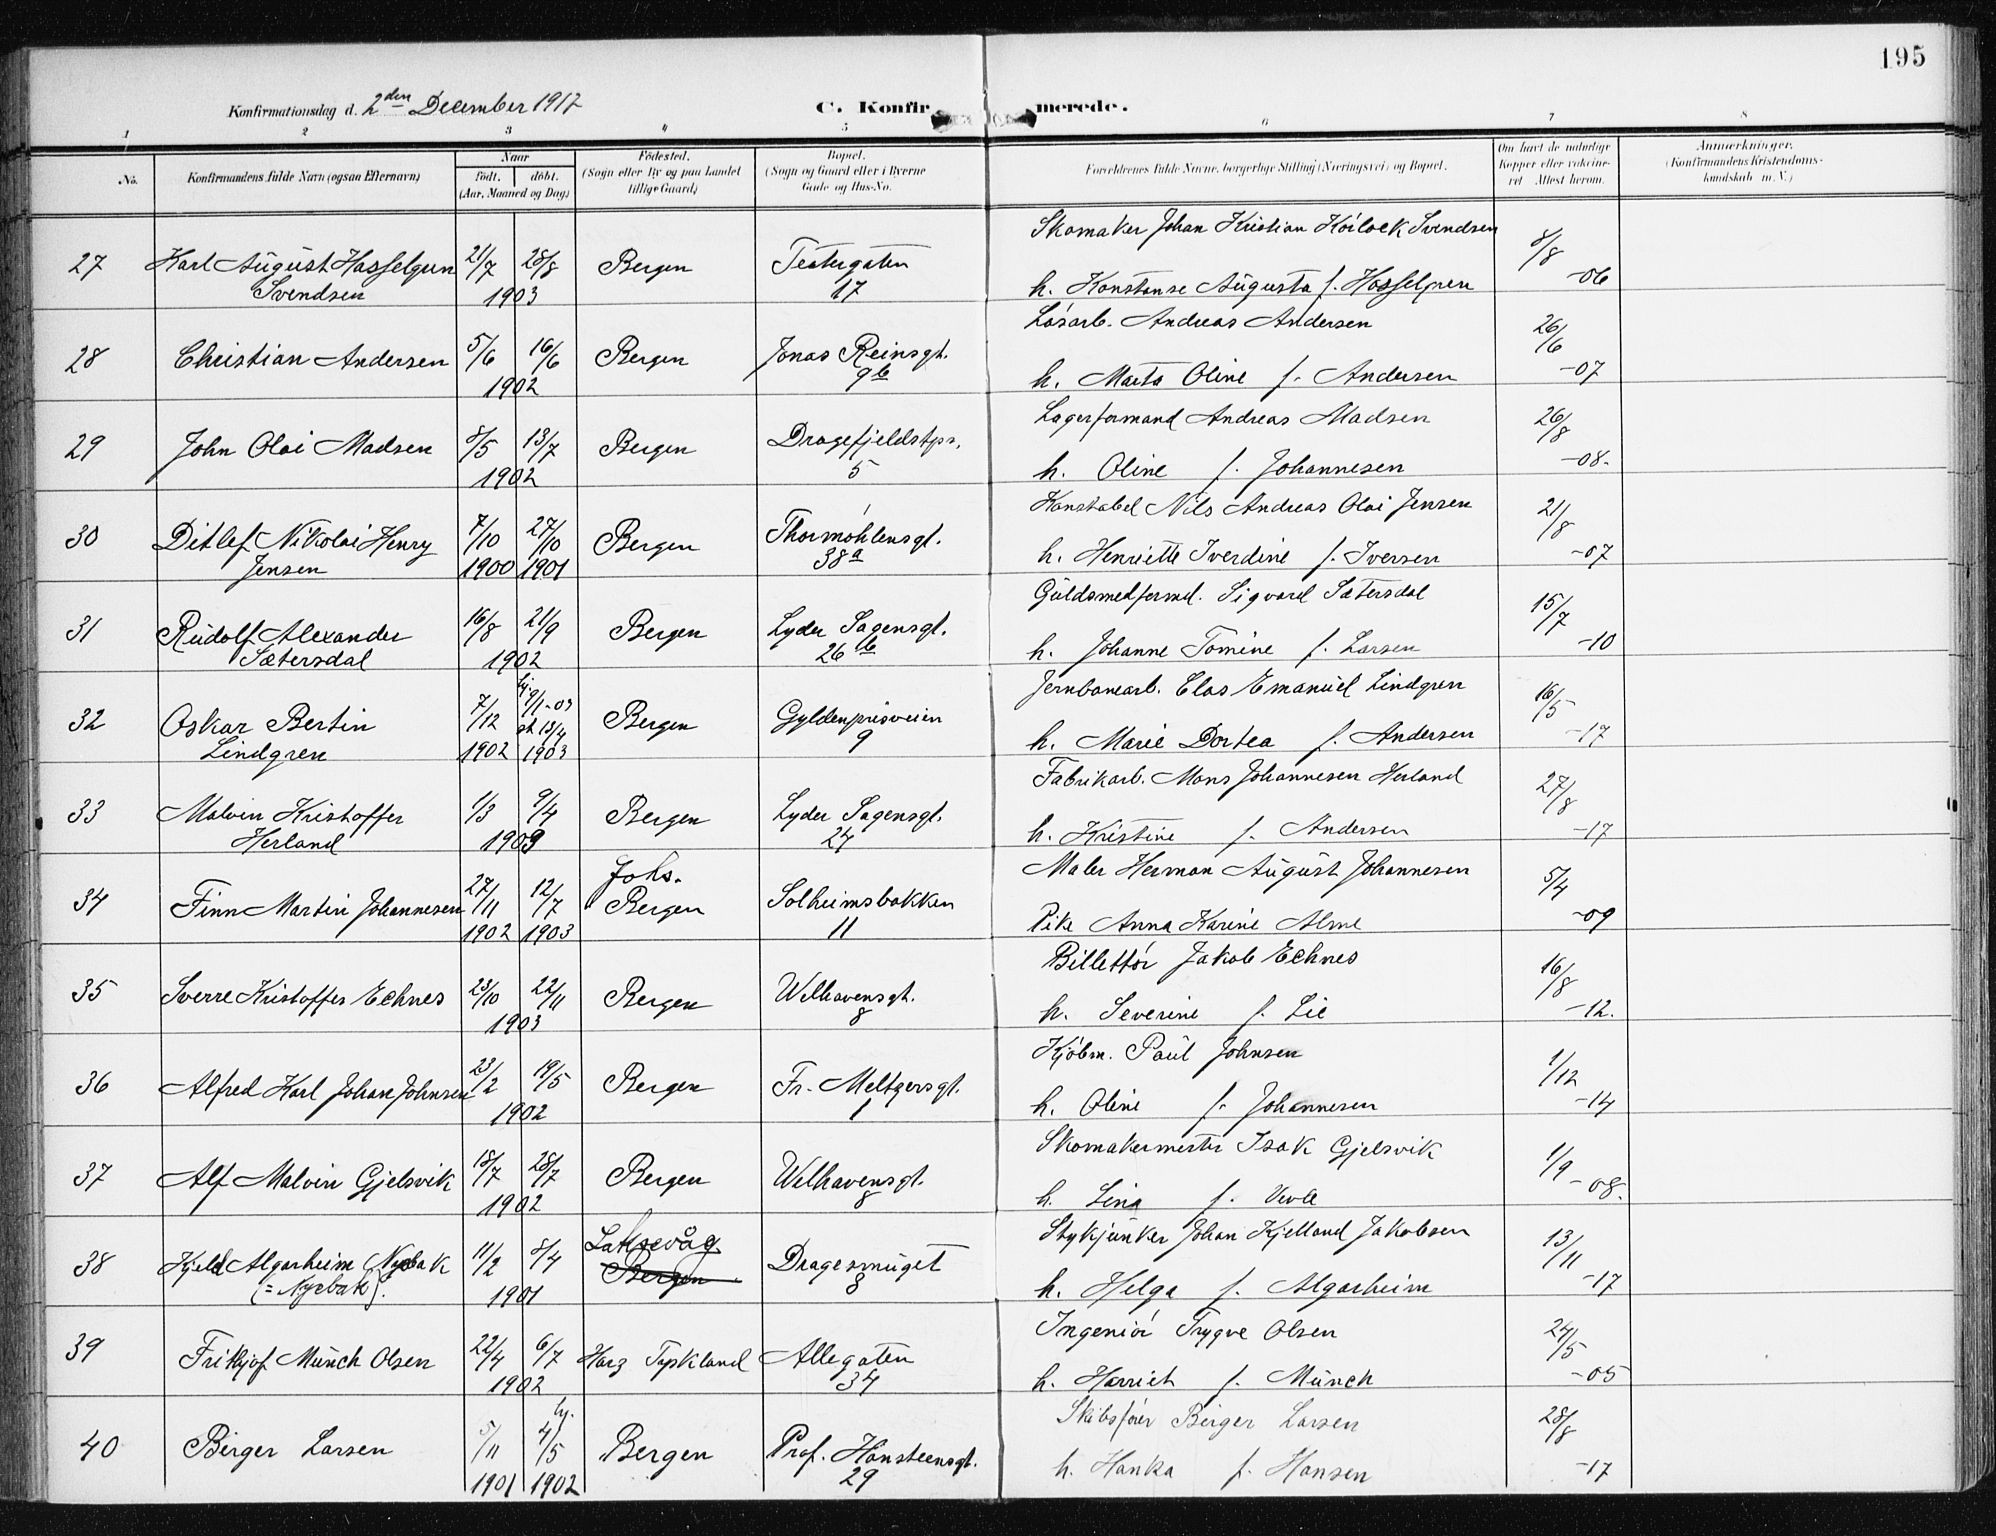 195
Konfirmationsdag d. 2den December 1917
C. Konfirmerede.
1 2 3 4 5 6 7 8
No. Konfirmandens fulde Navn (ogsaa Efternavn)
Naar
født. døbt.
(Aar, Maaned og Dag)
Fødested.
(Sogn eller By og paa Landet
tillige Gaard)
Bopæl.
(Sogn og Gaard eller i Byerne
Gade og Hus-No.
Forældrenes fulde Navne, borgerlige Stilling (Næringsvei) og Bopæl.
Om havt de naturlige
Kopper eller vaccine-
ret. Attest herom.
Anmærkninger.
(Konfirmandens Kristendoms-
kundskab m. V.)
27 Karl August Hasselgren 21/7 28/8 Bergen Teatergaten Skomaker Johan Kristian Svendsen 8/8
Svendsen 1903 17 h. Konstanse Augusta f. Hasselgren -06
28 Christian Andersen 5/6 16/6 Bergen Jonas Reinsgt. Løsarb. Andreas Andersen 26/6
1902 9b h. Marta Oline f. Andersen -07
29 John Olai Madsen 8/5 13/7 Bergen Dragefjeldstpr. Lagerformand Andreas Madsen 26/8
1902 5 h. Oline f. Johannesen -08.
30 Ditlef Nikolai Henry 7/10 27/10 Bergen Thormøhlensgt. Konstabel Nils Andreas Olai Jensen 21/8
Jensen 1900 1901 38a h. Henriette Iverdine f. Iversen -07
31 Rudolf Alexander 16/8 21/9 Bergen Lyder Sagensgt. Guldsmedformd. Sigvard Sætersdal 15/7
Sætersdal 1902 26b h. Johanne Tomine f. Larsen -10
32 Oskar Bertin 7/12 hj. 9/1-03 st 13/4 Bergen Gyldenprisveien Jernbanearb. Clas Emanuel Lindgren 16/5
Lindgren 1902 1903 9 h. Marie Dortea f. Andersen -17
33 Malvin Kristoffer 1/3 9/4 Bergen Lyder Sagensgt. Fabrikarb. Mons Johannesen Herland 27/8
Herland 1903 24 h. Kristine f. Andersen -17
34 Finn Martin Johannesen 27/11 12/7 Johs. Bergen Solheimsbakken Maler Herman August Johannesen 5/4
1902 1903 11 Pike Anna Karine Alme -09
35 Sverre Kristoffer Echnes 23/10 22/11 Bergen Welhavensgt. Billettør Jakob Echnes 16/8
1903 8 h. Severine f. Lie -12.
36 Alfred Karl Johan Johnsen 23/2 19/5 Bergen Fr. Meltzersgt. Kjøbm. Paul Johnsen 1/12
1902 1 h. Oline f. Johannesen -14
37 Alf Malvin Gjelsvik 18/7 28/7 Bergen Welhavensgt. Skomakermester Isak Gjelsvik 1/9
1902 8 h. Lina f. -08.
38 Kjeld Algarheim Nysbak 11/2 8/4 Laksevåg. Bergen Dragesmuget Stykjunker Johan Kjelland Jakobsen 13/11
(= Nysbak). 1901 8 h. Helga f. Algarheim -17
39 Fritjof Münch Olsen 22/4 6/7 Harz Tyskland Allegaten Ingeniør Trygve Olsen 24/5
1902 34 h. Harriet f. Münch -05
40 Birger Larsen 5/11 hj. 4/5 Bergen Prof. Hansteensgt. Skibsfører Birger Larsen 28/8
1901 1902 29 h. Hanka f. Hansen -17